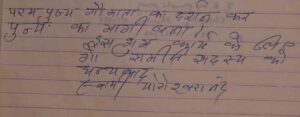 परम पुज्य गौमाता का दर्शन कर
पुर्न्य का भागी बना।
इस शुभ कार्य के लिए
गौ समिति सदस्य को
धन्यवाद
स्वामी योगेश्वरानंद